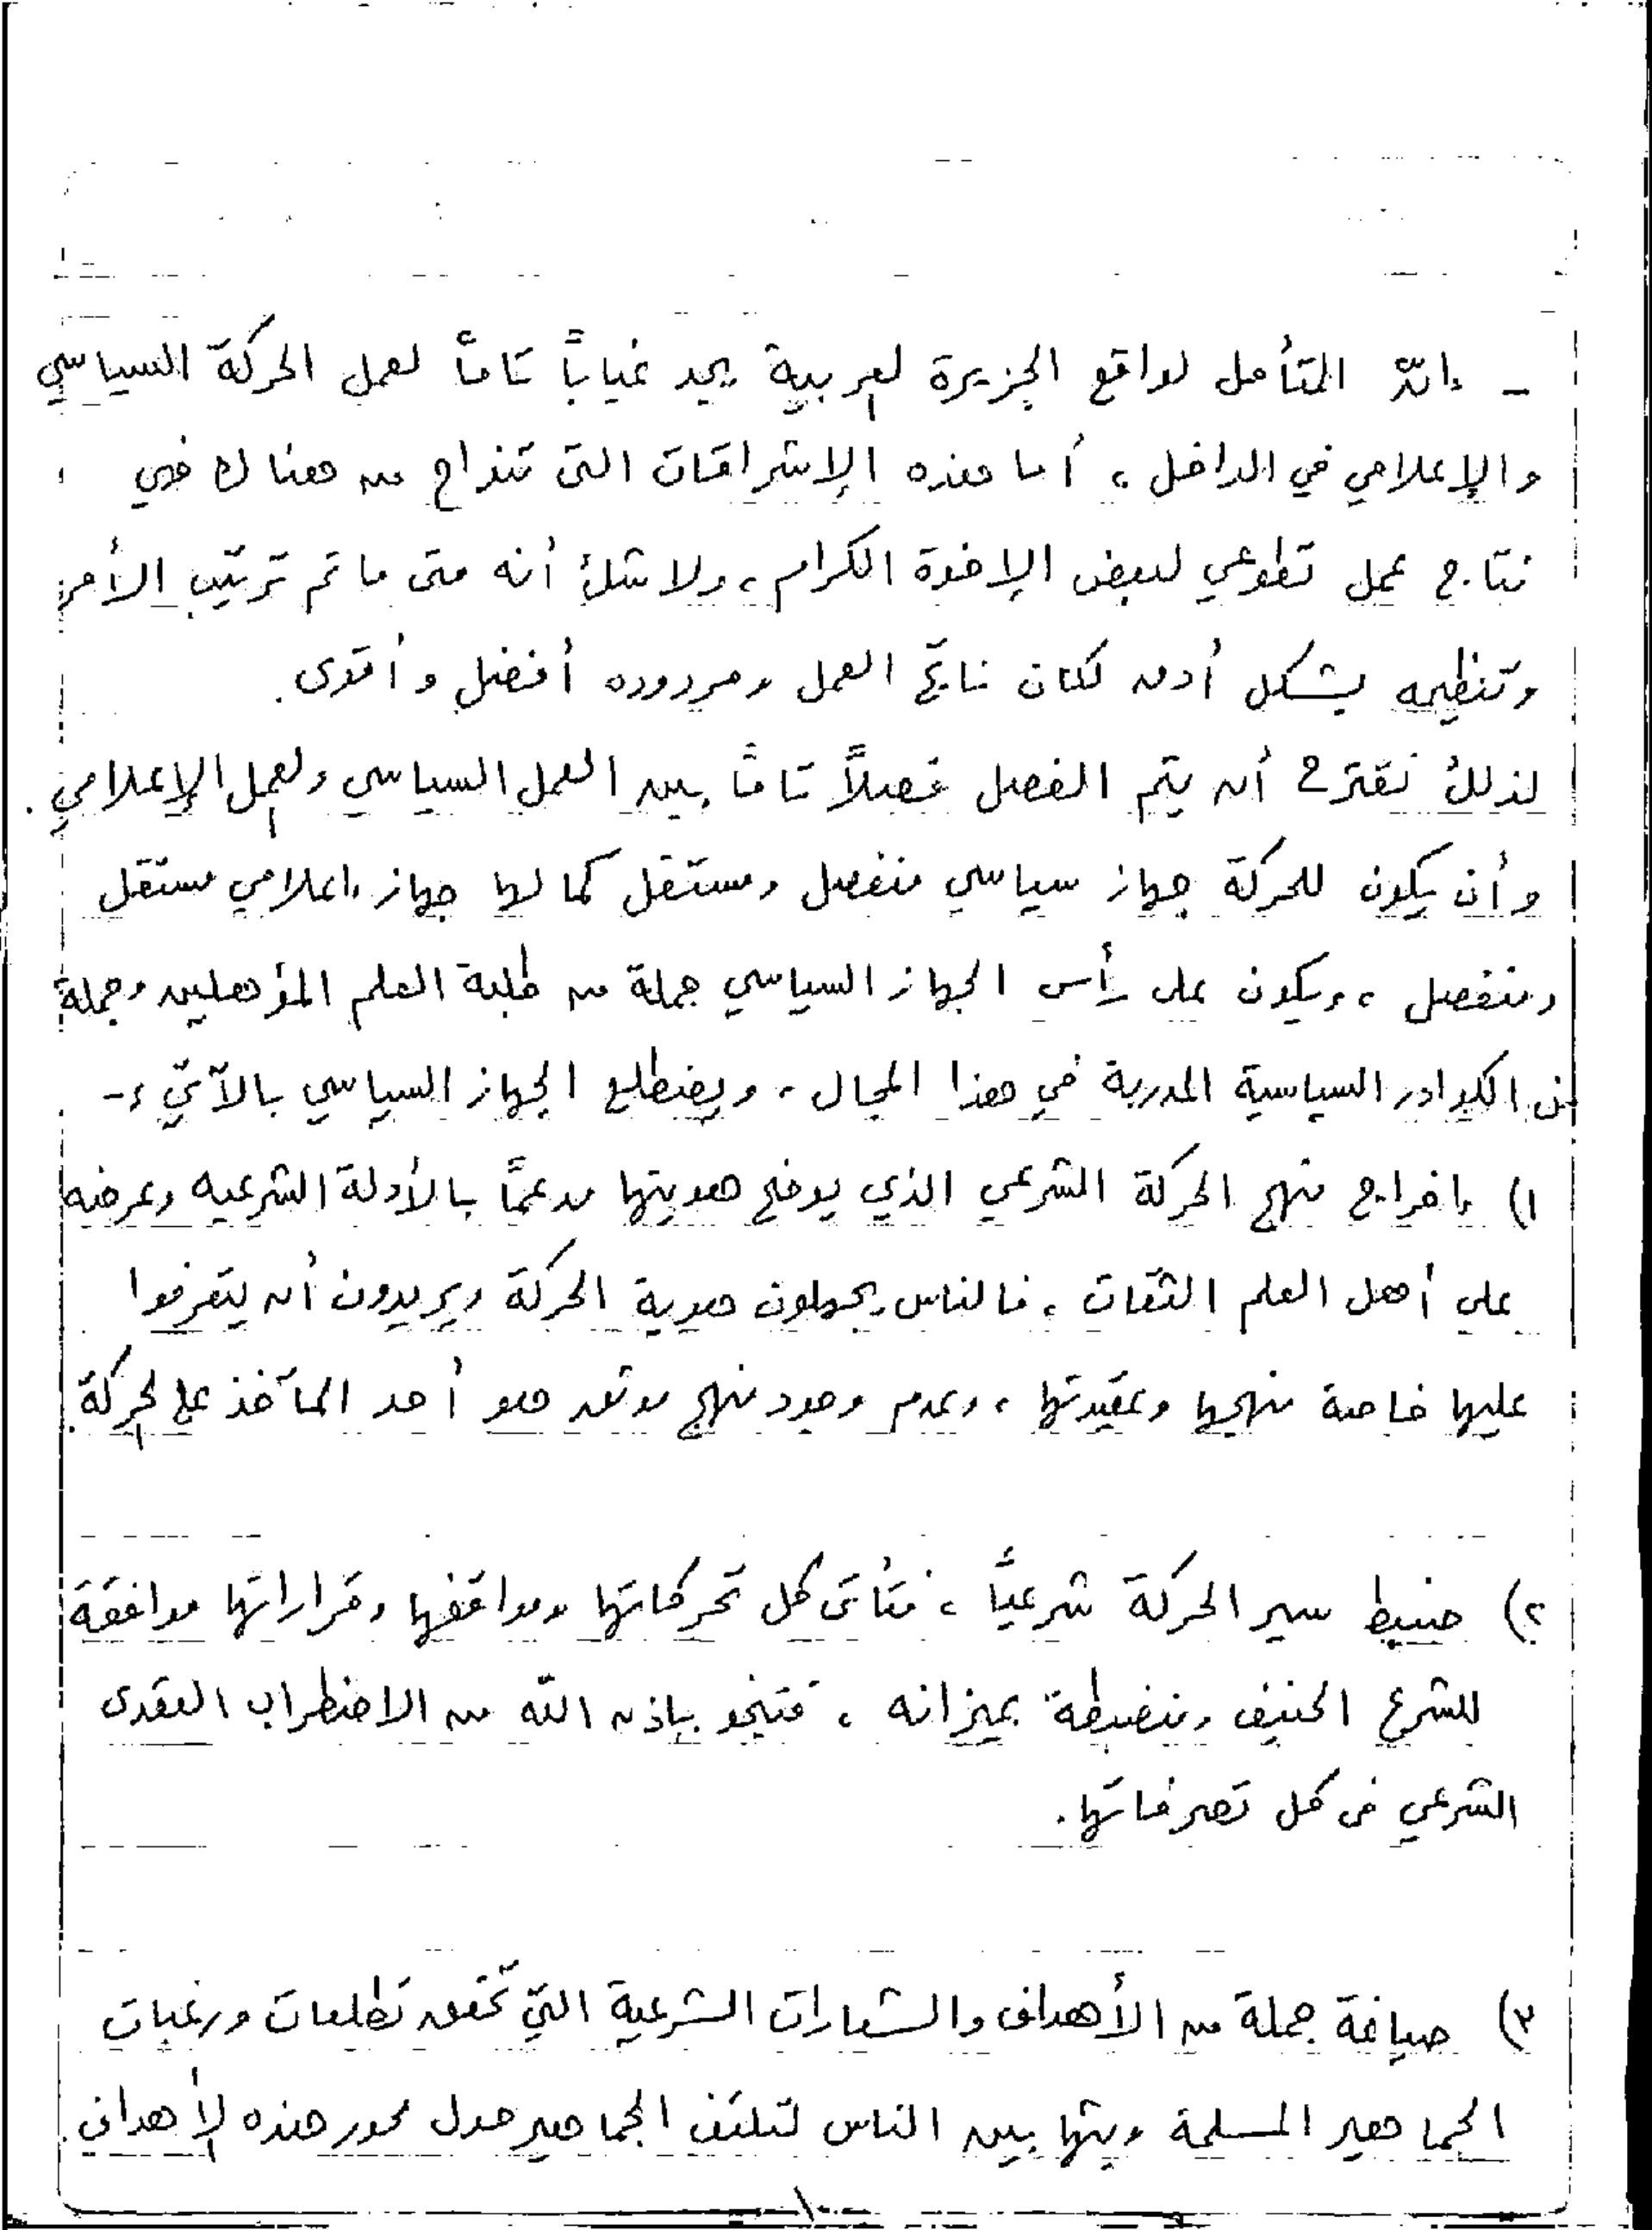 - إنّ المتأمل لواقع الجزيرة العربية يجد غياباً تاماً لعمل الحركة السياسي
والإعلامي في الداخل ، أما هذه الإشراقات التى تنداح من هناك فهي
نتاج عمل تطوعي لبعض الإخوة الكرام ، ولا شك أنه متى ما تم ترتيب الأمر
وتنظيمه بشكل أدق لكان ناتج العمل ومردوده أفضل وأقوى .
لذلك نقترح أن يتم الفصل فصلاً تاماً بين العمل السياسي والعمل الإعلامي .
وأن يكون للحركة جهاز سياسي منفصل ومستقل كما لها جهاز إعلامي مستقل
ومنفصل ، ويكون على رأس الجهاز السياسي جملة من طلبة العلم المؤهلين وجملة
من الكوادر السياسية المدربة في هذا المجال ، ويضطلع الجهاز السياسي بالآتي :-
١) إخراج منهج الحركة الشرعي الذي يوضح هويتها مدعماً بالأدلة الشرعيه وعرضه
على أهل العلم الثقات ، فالناس يجهلون هوية الحركة ويريدون أن يتعرفوا
عليها خاصة منهجها وعقيدتها ، وعدم وجود منهج موثق هو أحد المآخذ على الحركة .
٢) ضبط سير الحركة شرعياً ، فتأتى كل تحركاتها ومواقفها وقراراتها موافقة
للشرع الحنيف ومنضبطة بميزانه ، فتنجو بإذن الله من الاضطراب العقدى
الشرعي فى كل تصرفاتها .
٣) صياغة جملة من الأهداف والشعارات الشرعية التي تحقق تطلعات ورغبات
الجماهير المسلمة وبثها بين الناس لتلتف الجماهير حول محور هذه الأهداف .
١٠